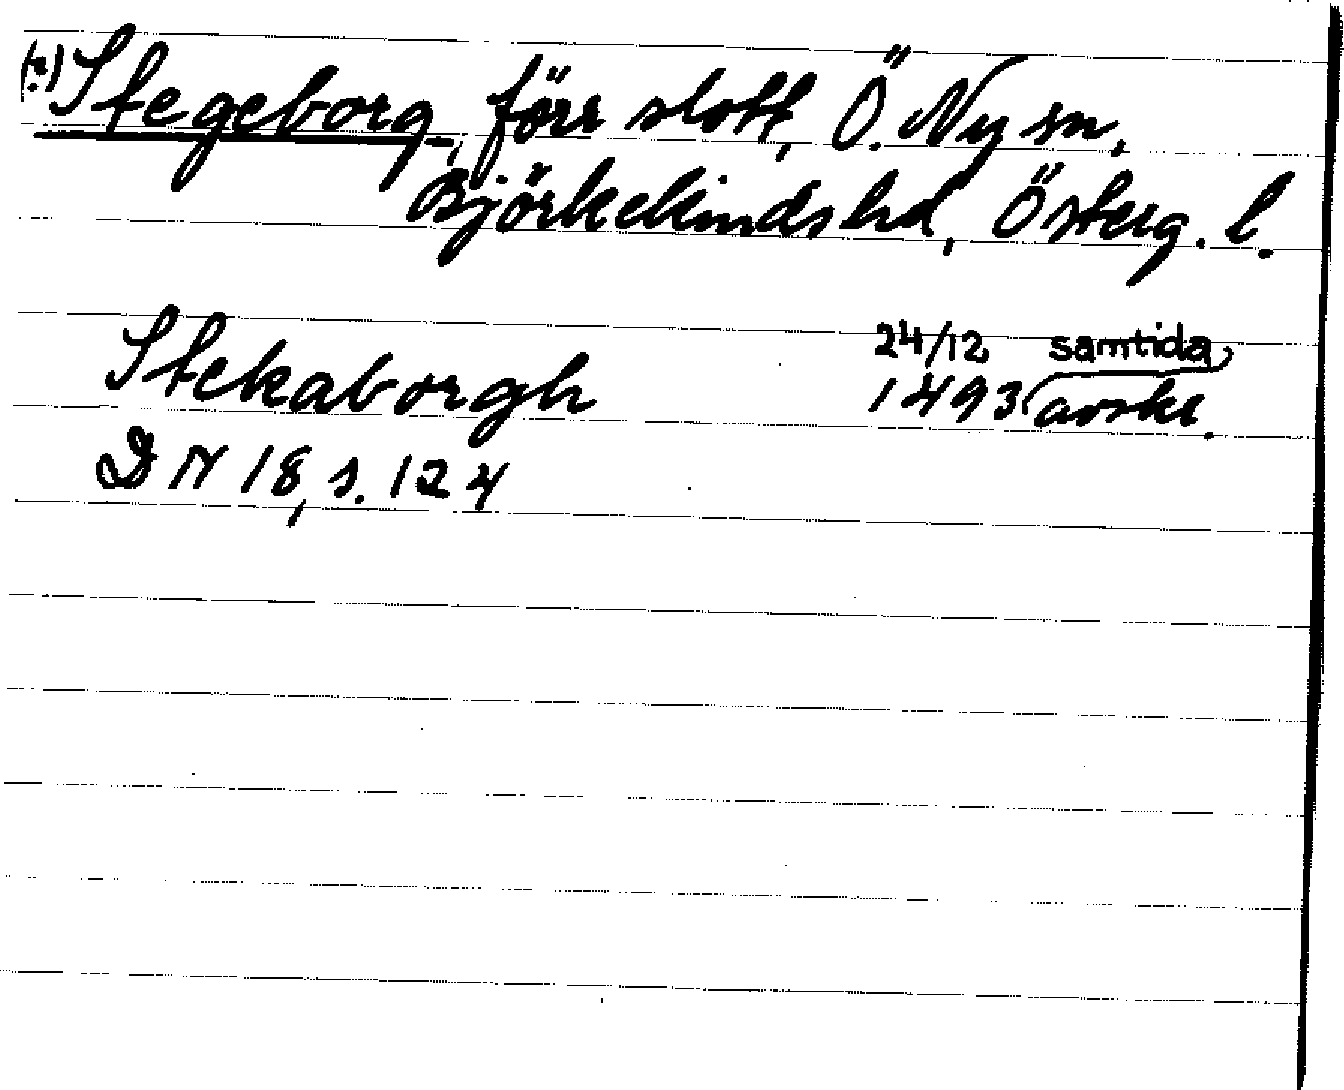 (?) Stegeborg, förr slott, Ö. Ny sn,
Björkekinds hd, Österg. l.
Stekaborgh 24/12 samtida
1493 avskr.
DN 18, s. 124